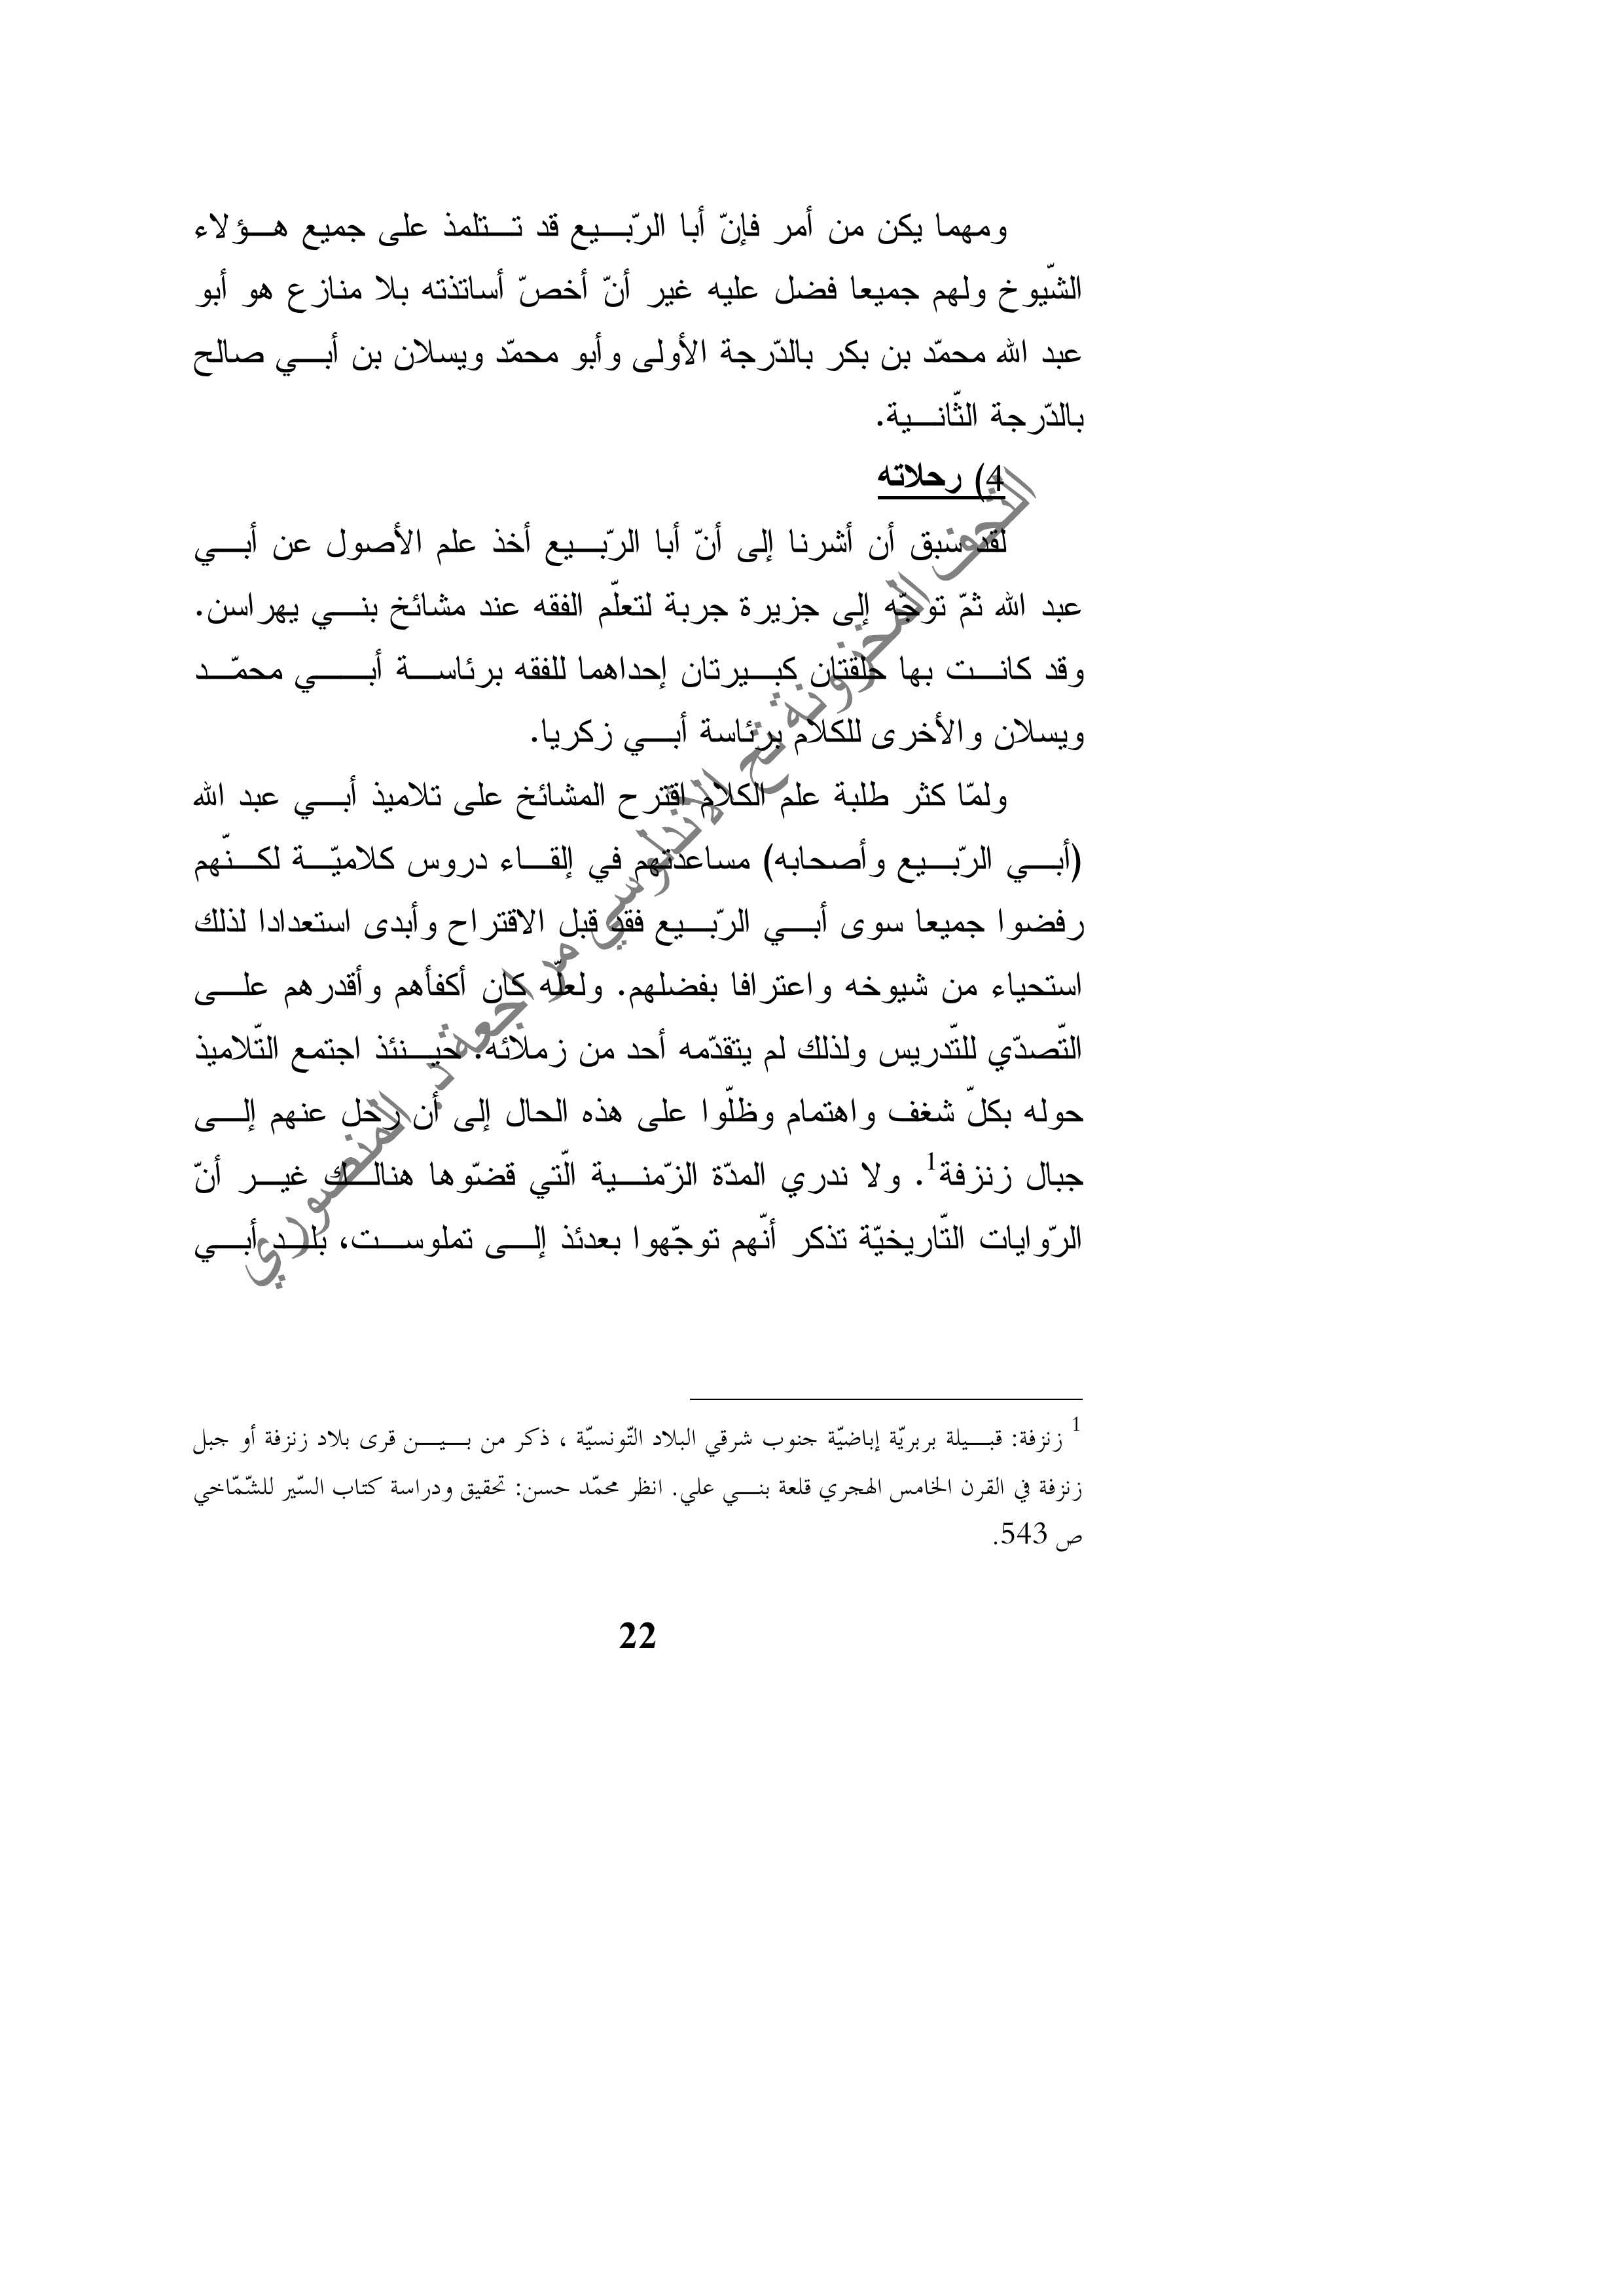 ومهما يكن من أمر فإنّ أبا الرّبـــيع قد تـــتلمذ على جميع هـــؤلاء
الشّيوخ ولهم جميعا فضل عليه غير أنّ أخصّ أساتذته بلا منازع هو أبو
عبد الله محمّد بن بكر بالدّرجة الأولى وأبو محمّد ويسلان بن أبـــي صالح
بالدّرجة الثّانـــية.
4) رحلاته
لقد سبق أن أشرنا إلى أنّ أبا الرّبـــيع أخذ علم الأصول عن أبـــي
عبد الله ثمّ توجّه إلى جزيرة جربة لتعلّم الفقه عند مشائخ بنـــي يهراسن.
وقد كانـــت بها حلقتان كبـــيرتان إحداهما للفقه برئاســـة أبـــــي محمّـــد
ويسلان والأخرى للكلام برئاسة أبـــي زكريا.
ولمّا كثر طلبة علم الكلام اقترح المشائخ على تلاميذ أبـــي عبد الله
(أبـــي الرّبـــيع وأصحابه) مساعدتهم في إلقـــاء دروس كلاميّـــة لكـــنّهم
رفضوا جميعا سوى أبـــي الرّبـــيع فقد قبل الاقتراح وأبدى استعدادا لذلك
استحياء من شيوخه واعترافا بفضلهم. ولعلّه كان أكفأهم وأقدرهم علـــى
التّصدّي للتّدريس ولذلك لم يتقدّمه أحد من زملائه. حيـــنئذ اجتمع التّلاميذ
حوله بكلّ شغف واهتمام وظلّوا على هذه الحال إلى أن رحل عنهم إلـــى
جبال زنزفة1. ولا ندري المدّة الزّمنـــية الّتي قضّوها هنالـــك غيـــر أنّ
الرّوايات التّاريخيّة تذكر أنّهم توجّهوا بعدئذ إلـــى تملوســـت، بلـــد أبـــي
التحف المخزونة تح الاندلوسي مراجعة بـ المنصوري
1 زنزفة: قبـــيلة بربريّة إباضيّة جنوب شرقي البلاد التّونسيّة ، ذكر من بـــيـــن قرى بلاد زنزفة أو جبل
زنزفة في القرن الخامس الهجري قلعة بنـــي علي. انظر محمّد حسن: تحقيق ودراسة كتاب السّير للشّمّاخي
ص 543.
22